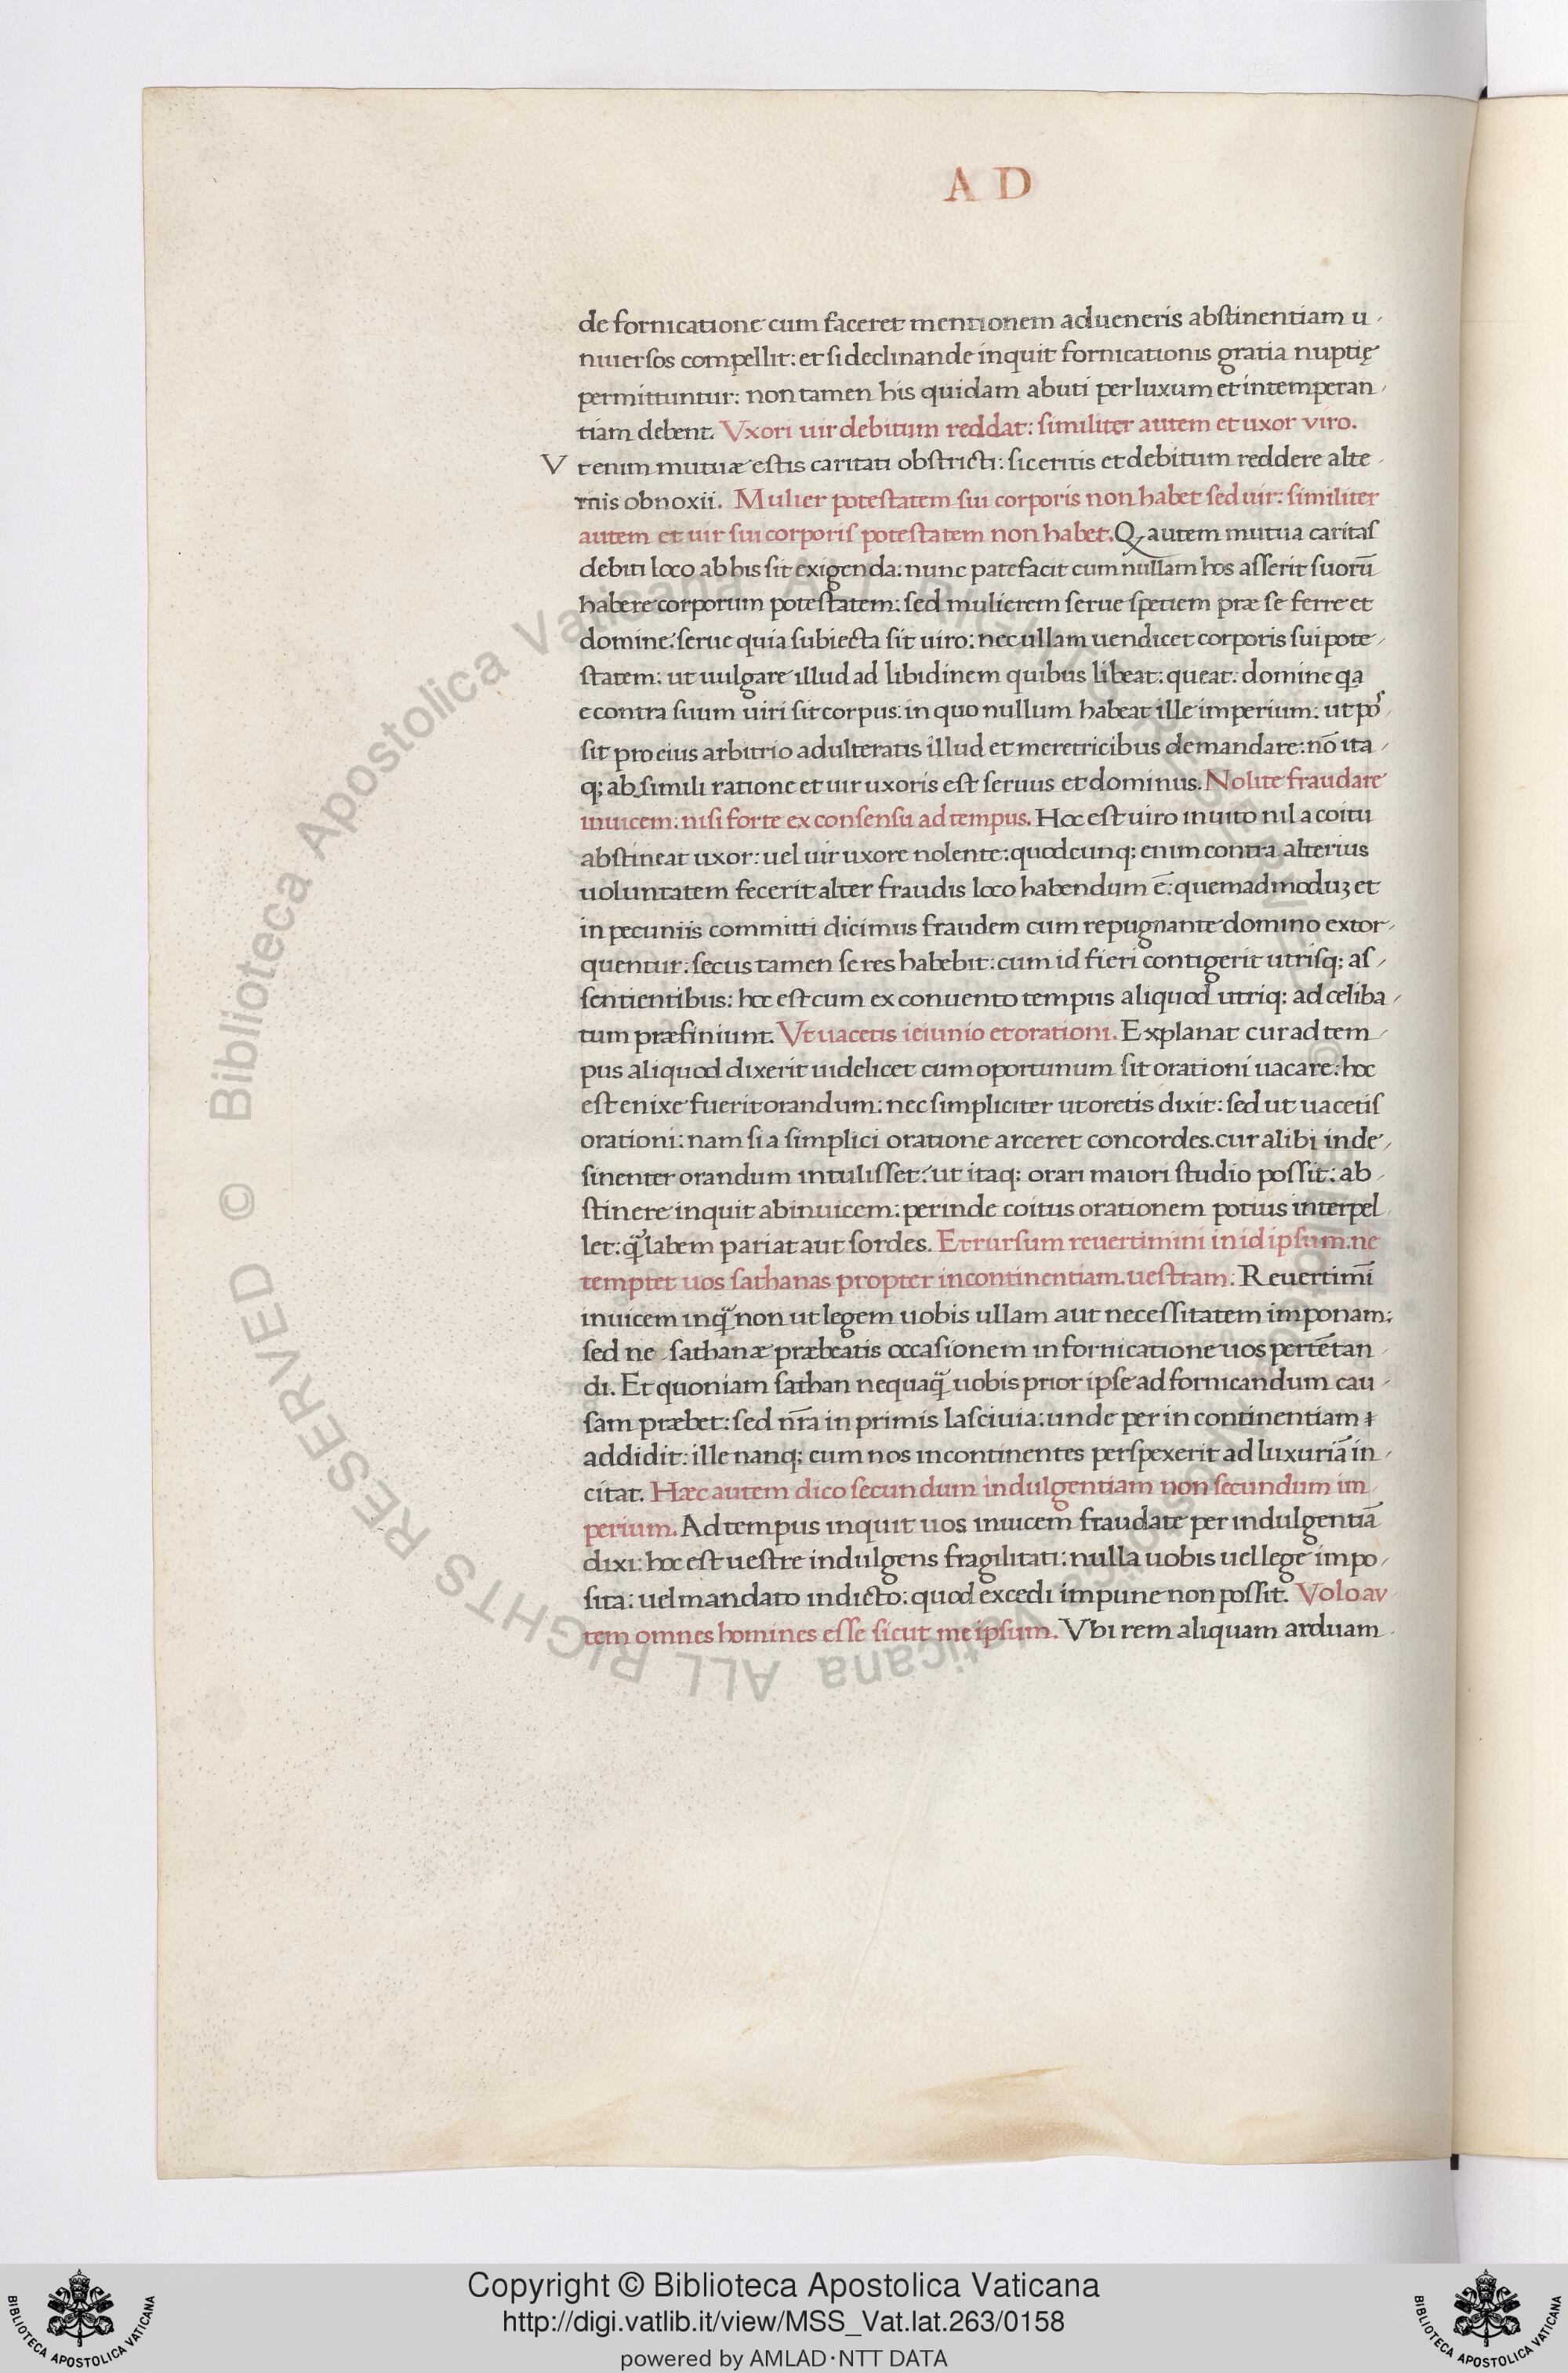 A D
de fornicatione cum faceret mentionem ad ueneris abstinentiam u-
niuersos compellit: et si declinande inquit fornicationis gratia nuptię
permittuntur: non tamen his quidam abuti per luxum et intemperan-
tiam debent. Vxori uir debitum reddat: similiter autem et uxor viro.
Vt enim mutuæ estis caritati obstricti: sic eritis et debitum reddere alte-
rnis obnoxii. Mulier potestatem sui corporis non habet sed uir: similiter
autem et uir sui corporis potestatem non habet. Q autem mutua caritas
debiti loco ab his sit exigenda: nunc patefacit cum nullam hos asserit suorū
habere corporum potestatem: sed mulierem serue speciem præ se ferre et
domine: serue quia subiecta sit uiro: nec ullam uendicet corporis sui pote-
statem: ut uulgare illud ad libidinem quibus libeat: queat: domine qa
econtra suum uiri sit corpus: in quo nullum habeat ille imperium: ut pos-
sit pro eius arbitrio adulteratis illud et meretricibus demandare: nō ita-
q; ab simili ratione et uir uxoris est seruus et dominus. Nolite fraudare
inuicem: nisi forte ex consensu ad tempus. Hoc est uiro inuito nil a coitu
abstineat uxor: uel uir uxore nolente: quodcunq; enim contra alterius
uoluntatem fecerit alter fraudis loco habendum ē: quemadmoduʒ et
in pecuniis committi dicimus fraudem cum repugnante domino extor-
quentur: secus tamen se res habebit: cum id fieri contigerit utrisq; as-
sentientibus: hoc est cum ex conuento tempus aliquod utriq; ad celiba-
tum præfiniunt. Vt uacetis ieiunio et orationi. Explanat cur ad tem-
pus aliquod dixerit uidelicet cum oportunum sit orationi uacare: hoc
est enixe fuerit orandum: nec simpliciter ut oretis dixit: sed ut uacetis
orationi: nam si a simplici oratione arceret concordes. cur alibi inde-
sinenter orandum intulisset: ut itaq; orari maiori studio possit: ab-
stinere inquit abinuicem: perinde coitus orationem potius interpel
let: q̃ labem pariat aut sordes. Et rursum reuertimini in id ipsum: ne
temptet uos sathanas propter incontinentiam uestram. Reuertimī
inuicem inq̃ non ut legem uobis ullam aut necessitatem imponam;
sed ne sathanæ præbeatis occasionem in fornicatione uos pertētan
di. Et quoniam sathan nequaq̃ uobis prior ipse ad fornicandum cau-
sam præbet: sed nr̄a in primis lasciuia: unde per incontinentiam
addidit: ille nanq; cum nos incontinentes perspexerit ad luxuriā in-
citat. Hæc autem dico secundum indulgentiam non secundum im
perium. Ad tempus inquit uos inuicem fraudate per indulgentiā
dixi: hoc est uestre indulgens fragilitati: nulla uobis uel lege impo-
sita: uel mandato indicto: quod excedi impune non possit. Volo au
tem omnes homines esse sicut me ipsum. Vbi rem aliquam arduam
© Biblioteca Apostolica Vaticana ALL RIGHTS RESERVED © Biblioteca Apostolica Vaticana ALL RIGHTS RESERVED
Copyright © Biblioteca Apostolica Vaticana
http://digi.vatlib.it/view/MSS_Vat.lat.263/0158
powered by AMLAD·NTT DATA
BIBLIOTECA APOSTOLICA VATICANA
BIBLIOTECA APOSTOLICA VATICANA